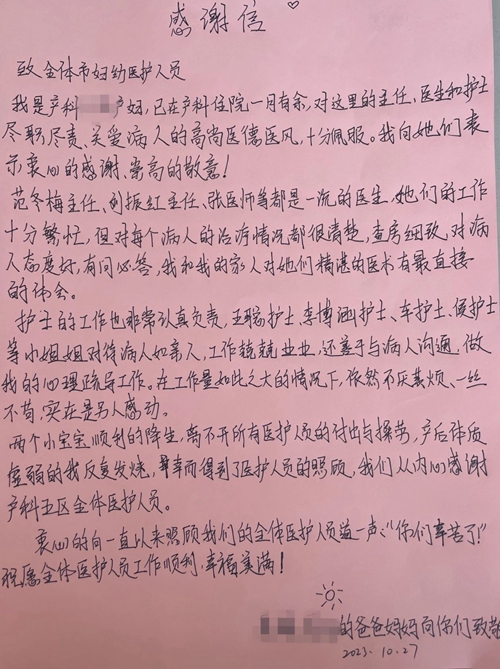 感谢信
致全体市妇幼医护人员
我是产科 产妇,已在产科住院一月有余,对这里的主任、医生和护士
尽职尽责、关爱病人的高尚医德医风,十分佩服。我向她们表
示衷心的感谢,崇高的敬意!
范冬梅主任、刘振红主任、张医师等都是一流的医生,她们的工作
十分繁忙,但对每个病人的治疗情况都很清楚,查房细致,对病
人态度好,有问必答,我和我的家人对她们精湛的医术有最直接
的体会。
护士的工作也非常认真负责,王聪护士、李博涵护士、车护士、侯护士
等小姐姐对待病人如亲人,工作兢兢业业,还善于与病人沟通,做
我的心理疏导工作。在工作量如此之大的情况下,依然不厌其烦、一丝
不苟,实在是另人感动。
两个小宝宝顺利的降生,离不开所有医护人员的付出与操劳,产后体质
虚弱的我反复发烧,幸而得到了医护人员的照顾,我们从内心感谢
产科五区全体医护人员。
衷心的向一直以来照顾我们的全体医护人员道一声:"你们辛苦了!"
祝愿全体医护人员工作顺利,幸福美满!
的爸爸妈妈向你们致敬
2023.10.27